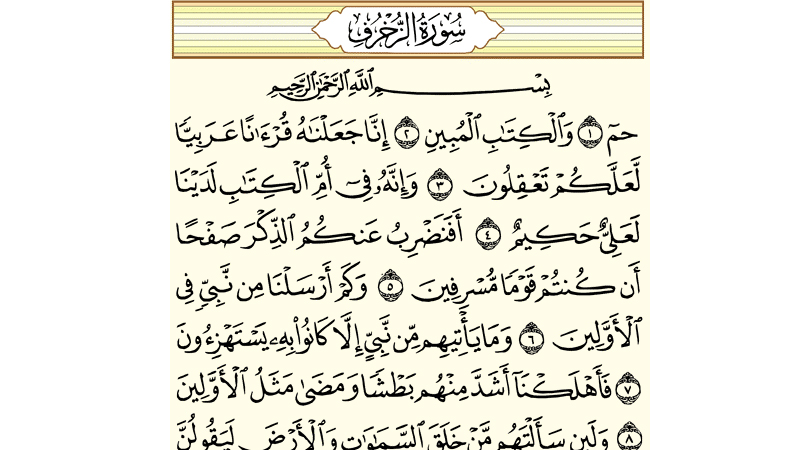 سُورَةُ الزُّخْرُفِ
بِسْمِ اللَّهِ الرَّحْمَٰنِ الرَّحِيمِ
حمٓ ١ وَٱلْكِتَٰبِ ٱلْمُبِينِ ٢ إِنَّا جَعَلْنَٰهُ قُرْءَٰنًا عَرَبِيًّا
لَّعَلَّكُمْ تَعْقِلُونَ ٣ وَإِنَّهُۥ فِىٓ أُمِّ ٱلْكِتَٰبِ لَدَيْنَا
لَعَلِىٌّ حَكِيمٌ ٤ أَفَنَضْرِبُ عَنكُمُ ٱلذِّكْرَ صَفْحًا
أَن كُنتُمْ قَوْمًا مُّسْرِفِينَ ٥ وَكَمْ أَرْسَلْنَا مِن نَّبِىٍّ فِى
ٱلْأَوَّلِينَ ٦ وَمَا يَأْتِيهِم مِّن نَّبِىٍّ إِلَّا كَانُوا۟ بِهِۦ يَسْتَهْزِءُونَ
٧ فَأَهْلَكْنَآ أَشَدَّ مِنْهُم بَطْشًا وَمَضَىٰ مَثَلُ ٱلْأَوَّلِينَ
٨ وَلَئِن سَأَلْتَهُم مَّنْ خَلَقَ ٱلسَّمَٰوَٰتِ وَٱلْأَرْضَ لَيَقُولُنَّ